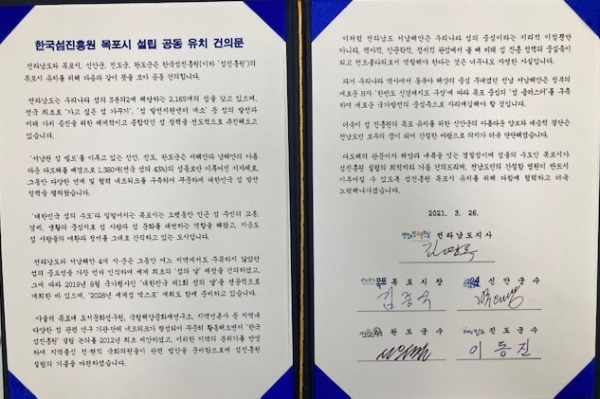 한국섬진흥원 목포시 설립 공동 유치 건의문
전라남도와 목포시, 신안군, 진도군, 완도군은 한국섬진흥원(이하 '섬진흥원')의
목포시 유치를 위해 다음과 같이 뜻을 모아 공동 건의합니다.
전라남도는 우리나라 섬의 3분의2에 해당하는 2,165개의 섬을 갖고 있으며,
전국 최초로 '가고 싶은 섬 가꾸기', '섬 발전지원센터 개소' 등 섬의 발전과
미래 가치 증진을 위한 체계적이고 종합적인 섬 정책을 선도적으로 추진해오고
있습니다.
'서남권 섬 벨트'를 이루고 있는 신안, 진도, 완도군은 서해안과 남해안의 아름
다운 다도해를 배경으로 1,380개(전국 섬의 43%)의 섬들로만 이루어진 지자체로
그동안 다양한 연계 및 협력 네트워크를 구축하여 꾸준하게 대한민국 섬 발전
정책을 펼쳐왔습니다.
'대한민국 섬의 수도'라 일컬어지는 목포시는 오랫동안 인근 섬 주민의 교통,
경제, 생활의 중심지로 섬 사람과 섬 문화를 대변하는 역할을 해왔고, 지금도
섬 사람들의 애환과 정서를 그대로 간직하고 있는 도시입니다.
전라남도와 서남해안 4개 시·군은 그동안 어느 지역에서도 주목하지 않았던
섬의 중요성을 가장 먼저 인식하여 세계 최초의 '섬의 날' 제정을 건의하였고,
그에 따라 2019년 8월 국가행사인 '대한민국 제1회 섬의 날'을 성공적으로
개최한 바 있으며, '2028년 세계섬 엑스포' 개최도 함께 준비하고 있습니다.
아울러 목포대 도서문화연구원, 국립해양문화재연구소, 지역언론사 등 지역내
다양한 섬 관련 연구 기관·단체 네트워크가 형성되어 꾸준히 활동해오면서 '한국
섬진흥원' 설립 논의를 2012년 최초 제안하였고, 이러한 지역의 분위기를 반영
하여 지역출신 전·현직 국회의원들이 관련 법안을 준비함으로써 섬진흥원
설립의 기틀을 마련하였습니다.
이처럼 전라남도 서남해안은 우리나라 섬의 중심이라는 지리적 이점뿐만
아니라, 역사적, 인문학적, 정서적 관점에서 볼 때 미래 섬 진흥 정책의 중심축이
되고 컨트롤타워로서 역할해야 한다는 것은 너무나도 자명한 사실입니다.
과거 우리나라 역사에서 동북아 해상의 중심 무대였던 전남 서남해안은 정부의
새로운 H자 '한반도 신경제지도 구상'에 따라 목포 중심의 '섬 클러스터'를 구축
하여 새로운 국가발전의 중심축으로 자리매김해야 할 것입니다.
더욱이 섬 진흥원의 목포 유치를 위한 신안군의 아름다운 양보와 대승적 결단은
전남도민 모두의 꿈이 되어 간절한 바람으로 의지가 더욱 단단해졌습니다.
다도해의 관문이자 해양과 내륙을 잇는 경제중심이며 섬들의 수도인 목포시가
섬진흥원 설립의 최적지라 거듭 건의드리며, 전남도민의 간절한 염원이 반드시
이루어질 수 있도록 섬진흥원 목포시 유치를 위해 다함께 협력하고 더욱
노력해나가겠습니다.
2021. 3. 26.
전라남도지사
목포시장 신안군수
완도군수 진도군수
이동진